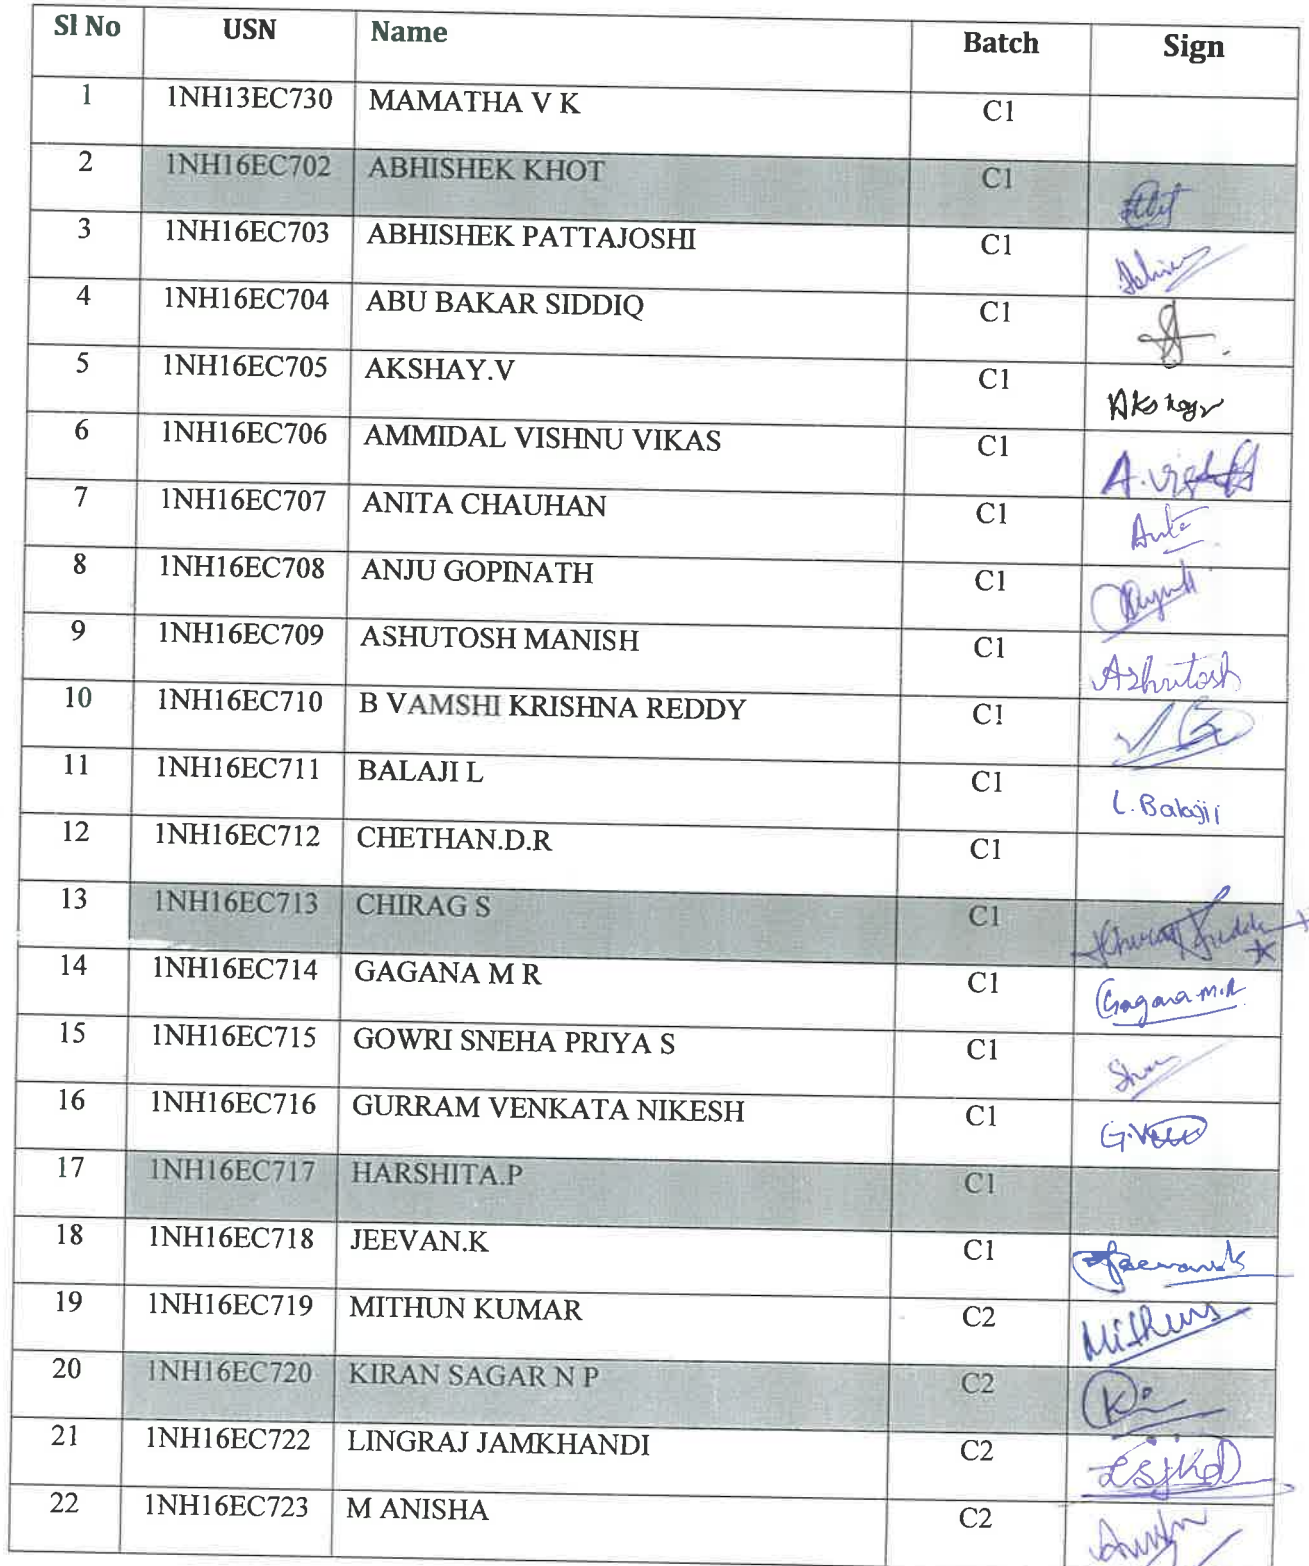 Sl No USN Name Batch Sign
1 1NH13EC730 MAMATHA V K C1
2 1NH16EC702 ABHISHEK KHOT C1
3 1NH16EC703 ABHISHEK PATTAJOSHI C1
4 1NH16EC704 ABU BAKAR SIDDIQ C1
5 1NH16EC705 AKSHAY.V C1 Akshay
6 1NH16EC706 AMMIDAL VISHNU VIKAS C1
7 1NH16EC707 ANITA CHAUHAN C1
8 1NH16EC708 ANJU GOPINATH C1
9 1NH16EC709 ASHUTOSH MANISH C1 Ashutosh
10 1NH16EC710 B VAMSHI KRISHNA REDDY C1
11 1NH16EC711 BALAJI L C1 L. Balaji
12 1NH16EC712 CHETHAN.D.R C1
13 1NH16EC713 CHIRAG S C1
14 1NH16EC714 GAGANA M R C1 Gagana M.R
15 1NH16EC715 GOWRI SNEHA PRIYA S C1
16 1NH16EC716 GURRAM VENKATA NIKESH C1
17 1NH16EC717 HARSHITA.P C1
18 1NH16EC718 JEEVAN.K C1
19 1NH16EC719 MITHUN KUMAR C2 Mithun
20 1NH16EC720 KIRAN SAGAR N P C2
21 1NH16EC722 LINGRAJ JAMKHANDI C2
22 1NH16EC723 M ANISHA C2